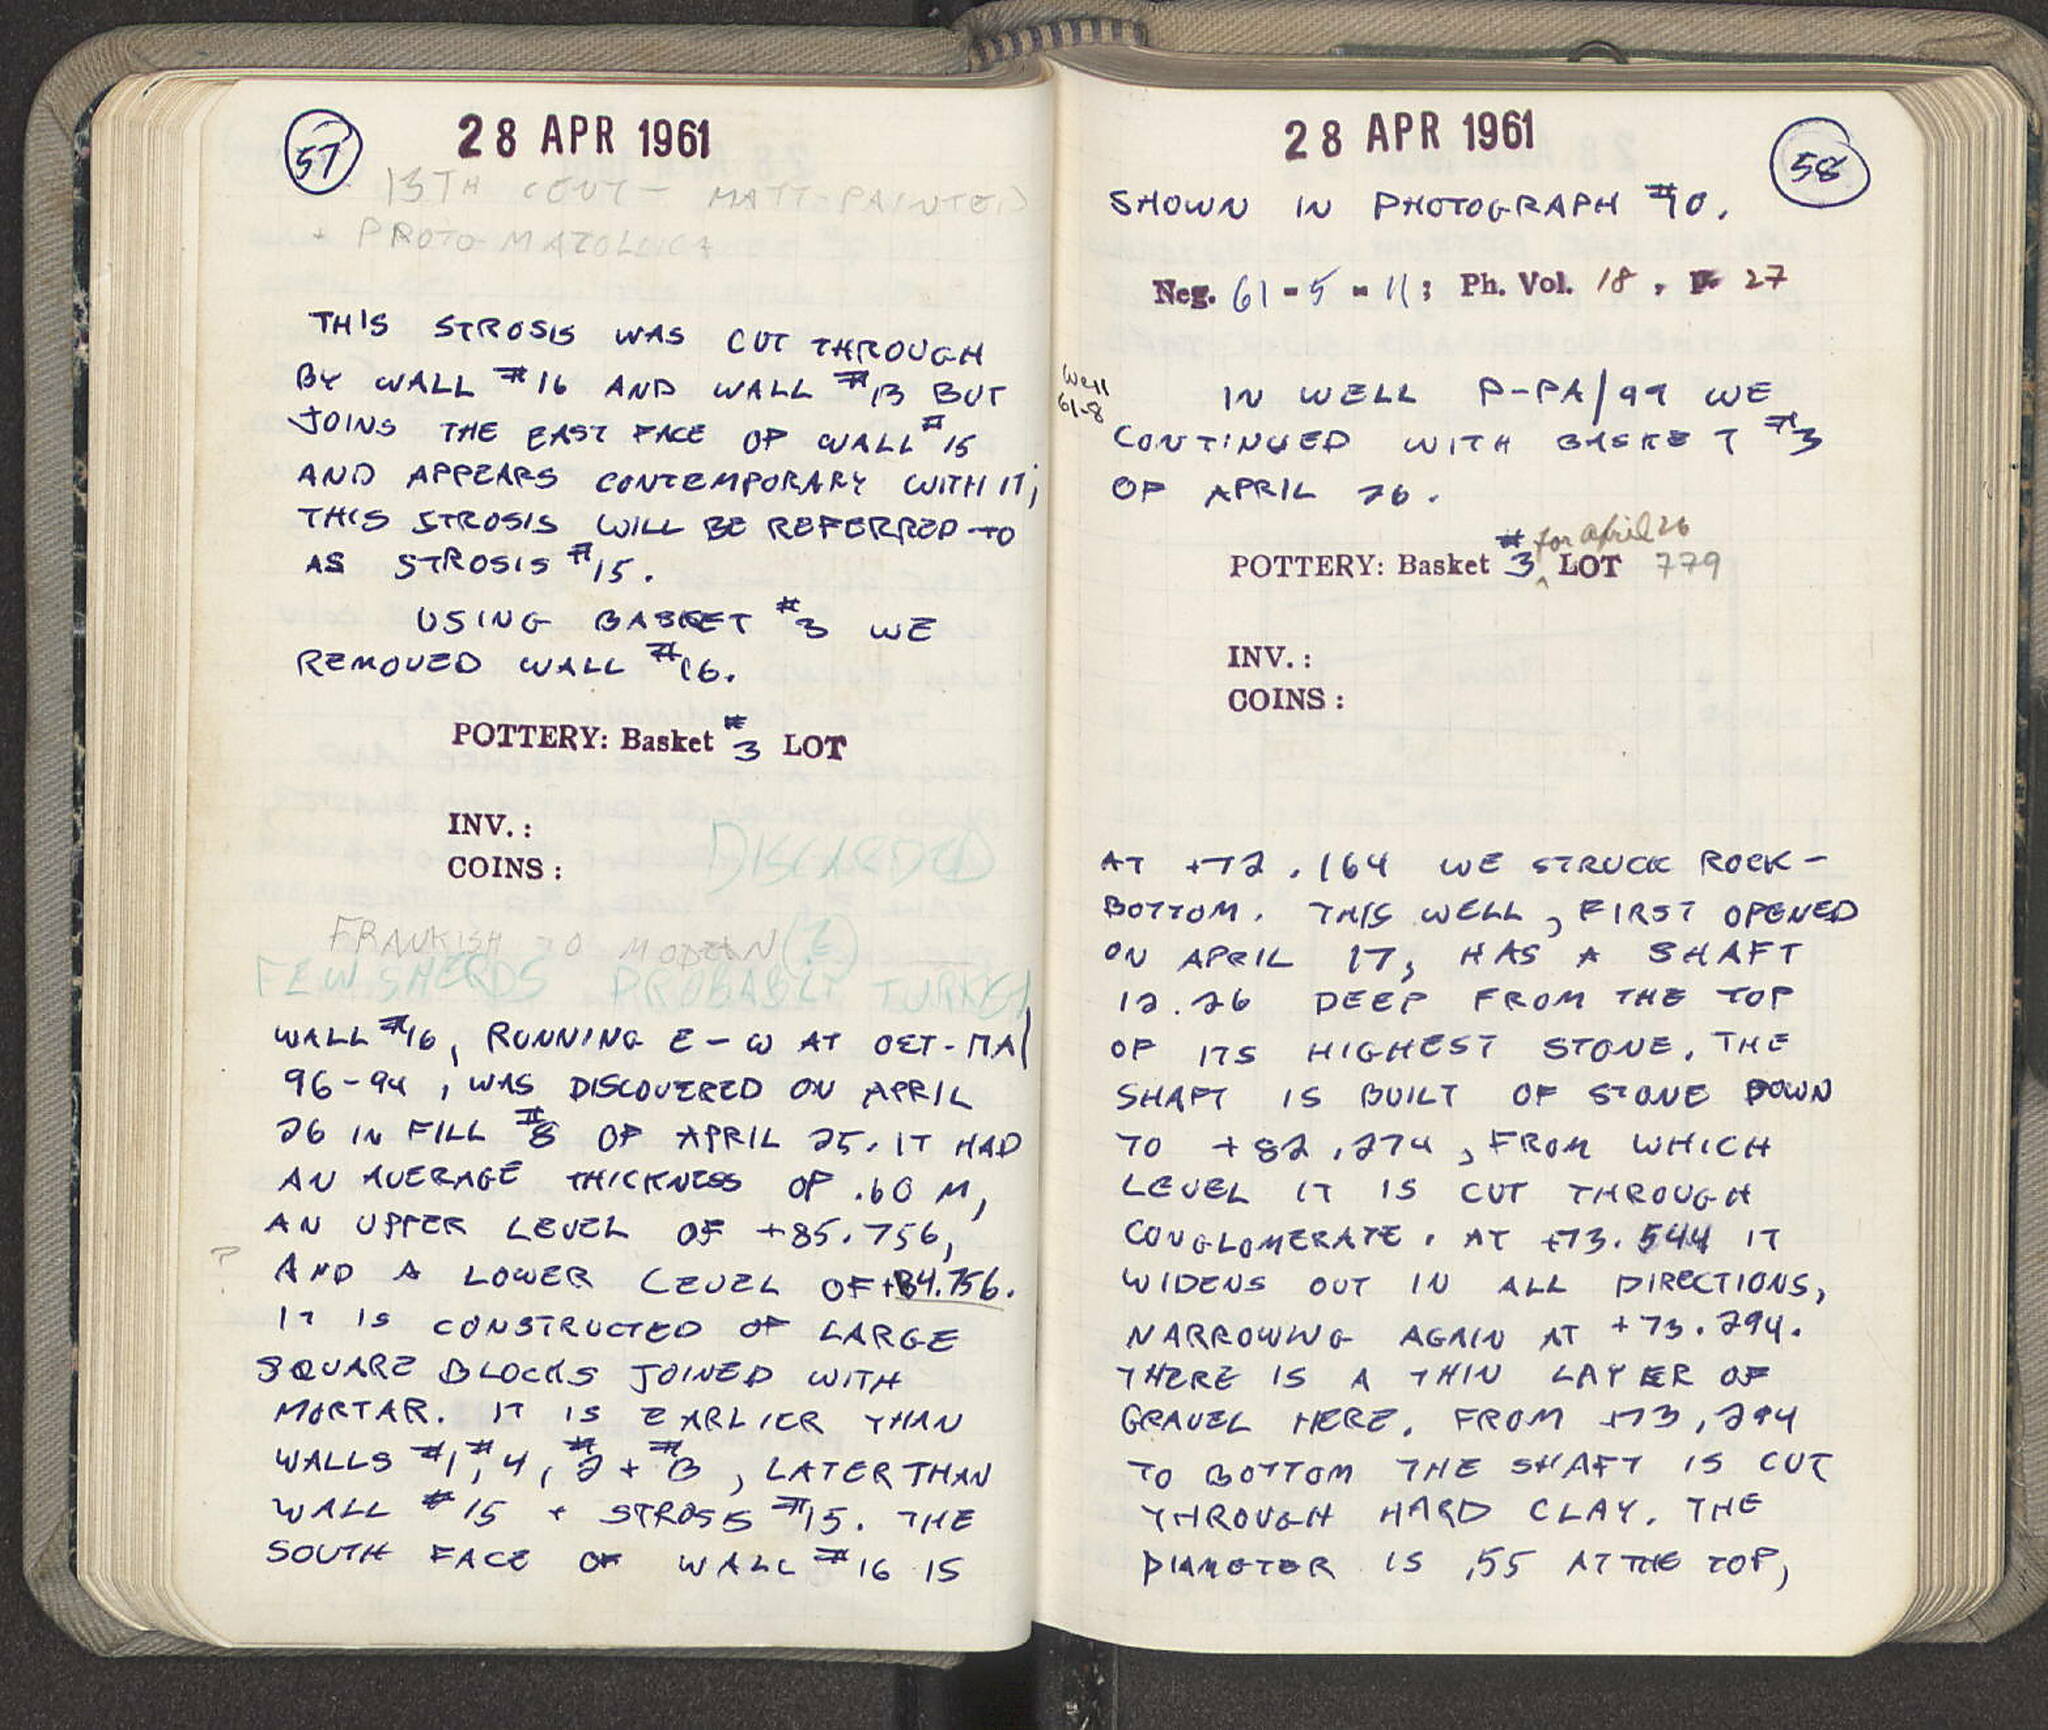 57
28 APR 1961
13TH CENT - MATT-PAINTED
+ PROTO-MAIOLICA
THIS STROSIS WAS CUT THROUGH
BY WALL #16 AND WALL #13 BUT
JOINS THE EAST FACE OF WALL #15
AND APPEARS CONTEMPORARY WITH IT;
THIS STROSIS WILL BE REFERRED TO
AS STROSIS #15.
USING BASKET #3 WE
REMOVED WALL #16.
POTTERY: Basket #3 LOT
INV.:
COINS:
DISCARDED
FRANKISH TO MODERN (?)
FEW SHERDS PROBABLY
WALL #16, RUNNING E-W AT ΟΣΤ-ΠΑ/
96-94, WAS DISCOVERED ON APRIL
26 IN FILL #8 OF APRIL 25. IT HAD
AN AVERAGE THICKNESS OF .60 M,
AN UPPER LEVEL OF +85.756,
? AND A LOWER LEVEL OF +84.756.
IT IS CONSTRUCTED OF LARGE
SQUARE BLOCKS JOINED WITH
MORTAR. IT IS EARLIER THAN
WALLS #1, #4, #2 + #13, LATER THAN
WALL #15 + STROSIS #15. THE
SOUTH FACE OF WALL #16 IS
28 APR 1961
58
SHOWN IN PHOTOGRAPH #10.
Neg. 61-5-11; Ph. Vol. 18, p. 27
Well
61-8
IN WELL P-ΠΑ/99 WE
CONTINUED WITH BASKET #3
OF APRIL 26.
for april 26
POTTERY: Basket #3 ^ LOT 779
INV.:
COINS:
AT +72.164 WE STRUCK ROCK-
BOTTOM. THIS WELL, FIRST OPENED
ON APRIL 17, HAS A SHAFT
12.26 DEEP FROM THE TOP
OF ITS HIGHEST STONE. THE
SHAFT IS BUILT OF STONE DOWN
TO +82.274, FROM WHICH
LEVEL IT IS CUT THROUGH
CONGLOMERATE. AT +73.544 IT
WIDENS OUT IN ALL DIRECTIONS,
NARROWING AGAIN AT +73.294.
THERE IS A THIN LAYER OF
GRAVEL HERE. FROM +73.294
TO BOTTOM THE SHAFT IS CUT
THROUGH HARD CLAY. THE
DIAMETER IS .55 AT THE TOP,